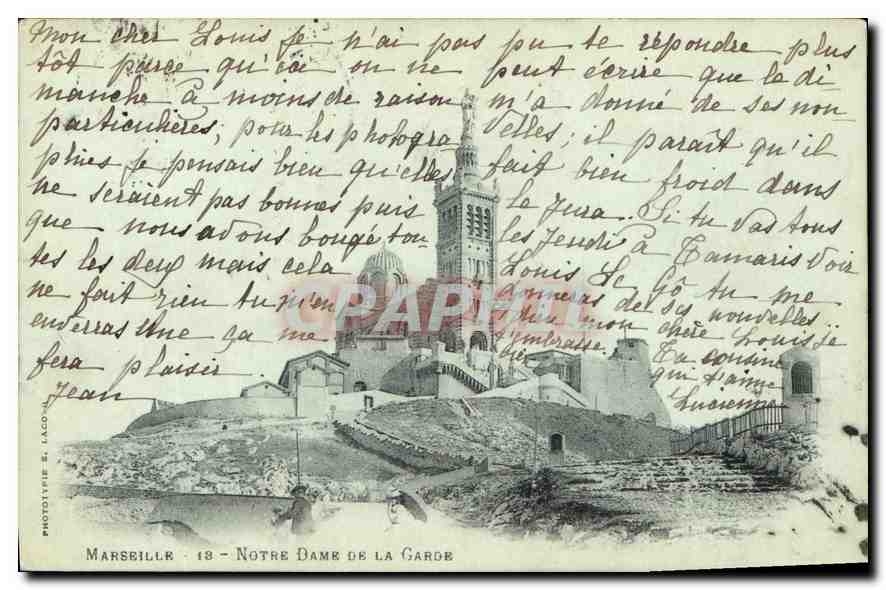 Mon cher Louis je n'ai pas pu te répondre plus
tôt parce qu'ici on ne peut écrire que le di
manche à moins de raison m'a donné de ses nou
particulières, pour les photogra velles; il paraît qu'il
phies je pensais bien qu'elles fait bien froid dans
ne seraient pas bonnes puis le Jura. Si tu vas tous
que nous avons bougé tou les Jendi à Tamaris voir
tes les deux mais cela Louis Le Gô tu me
ne fait rien tu m'en donneras de ses nouvelles
enverras une ça me Adieu mon chère Louis je
fera plaisir t'embrasse Ta cousine
Jean bien qui t'aime
Lucienne
CARTE
CPArama
PHOTOTYPIE E. LACO
MARSEILLE - 13 - NOTRE DAME DE LA GARDE